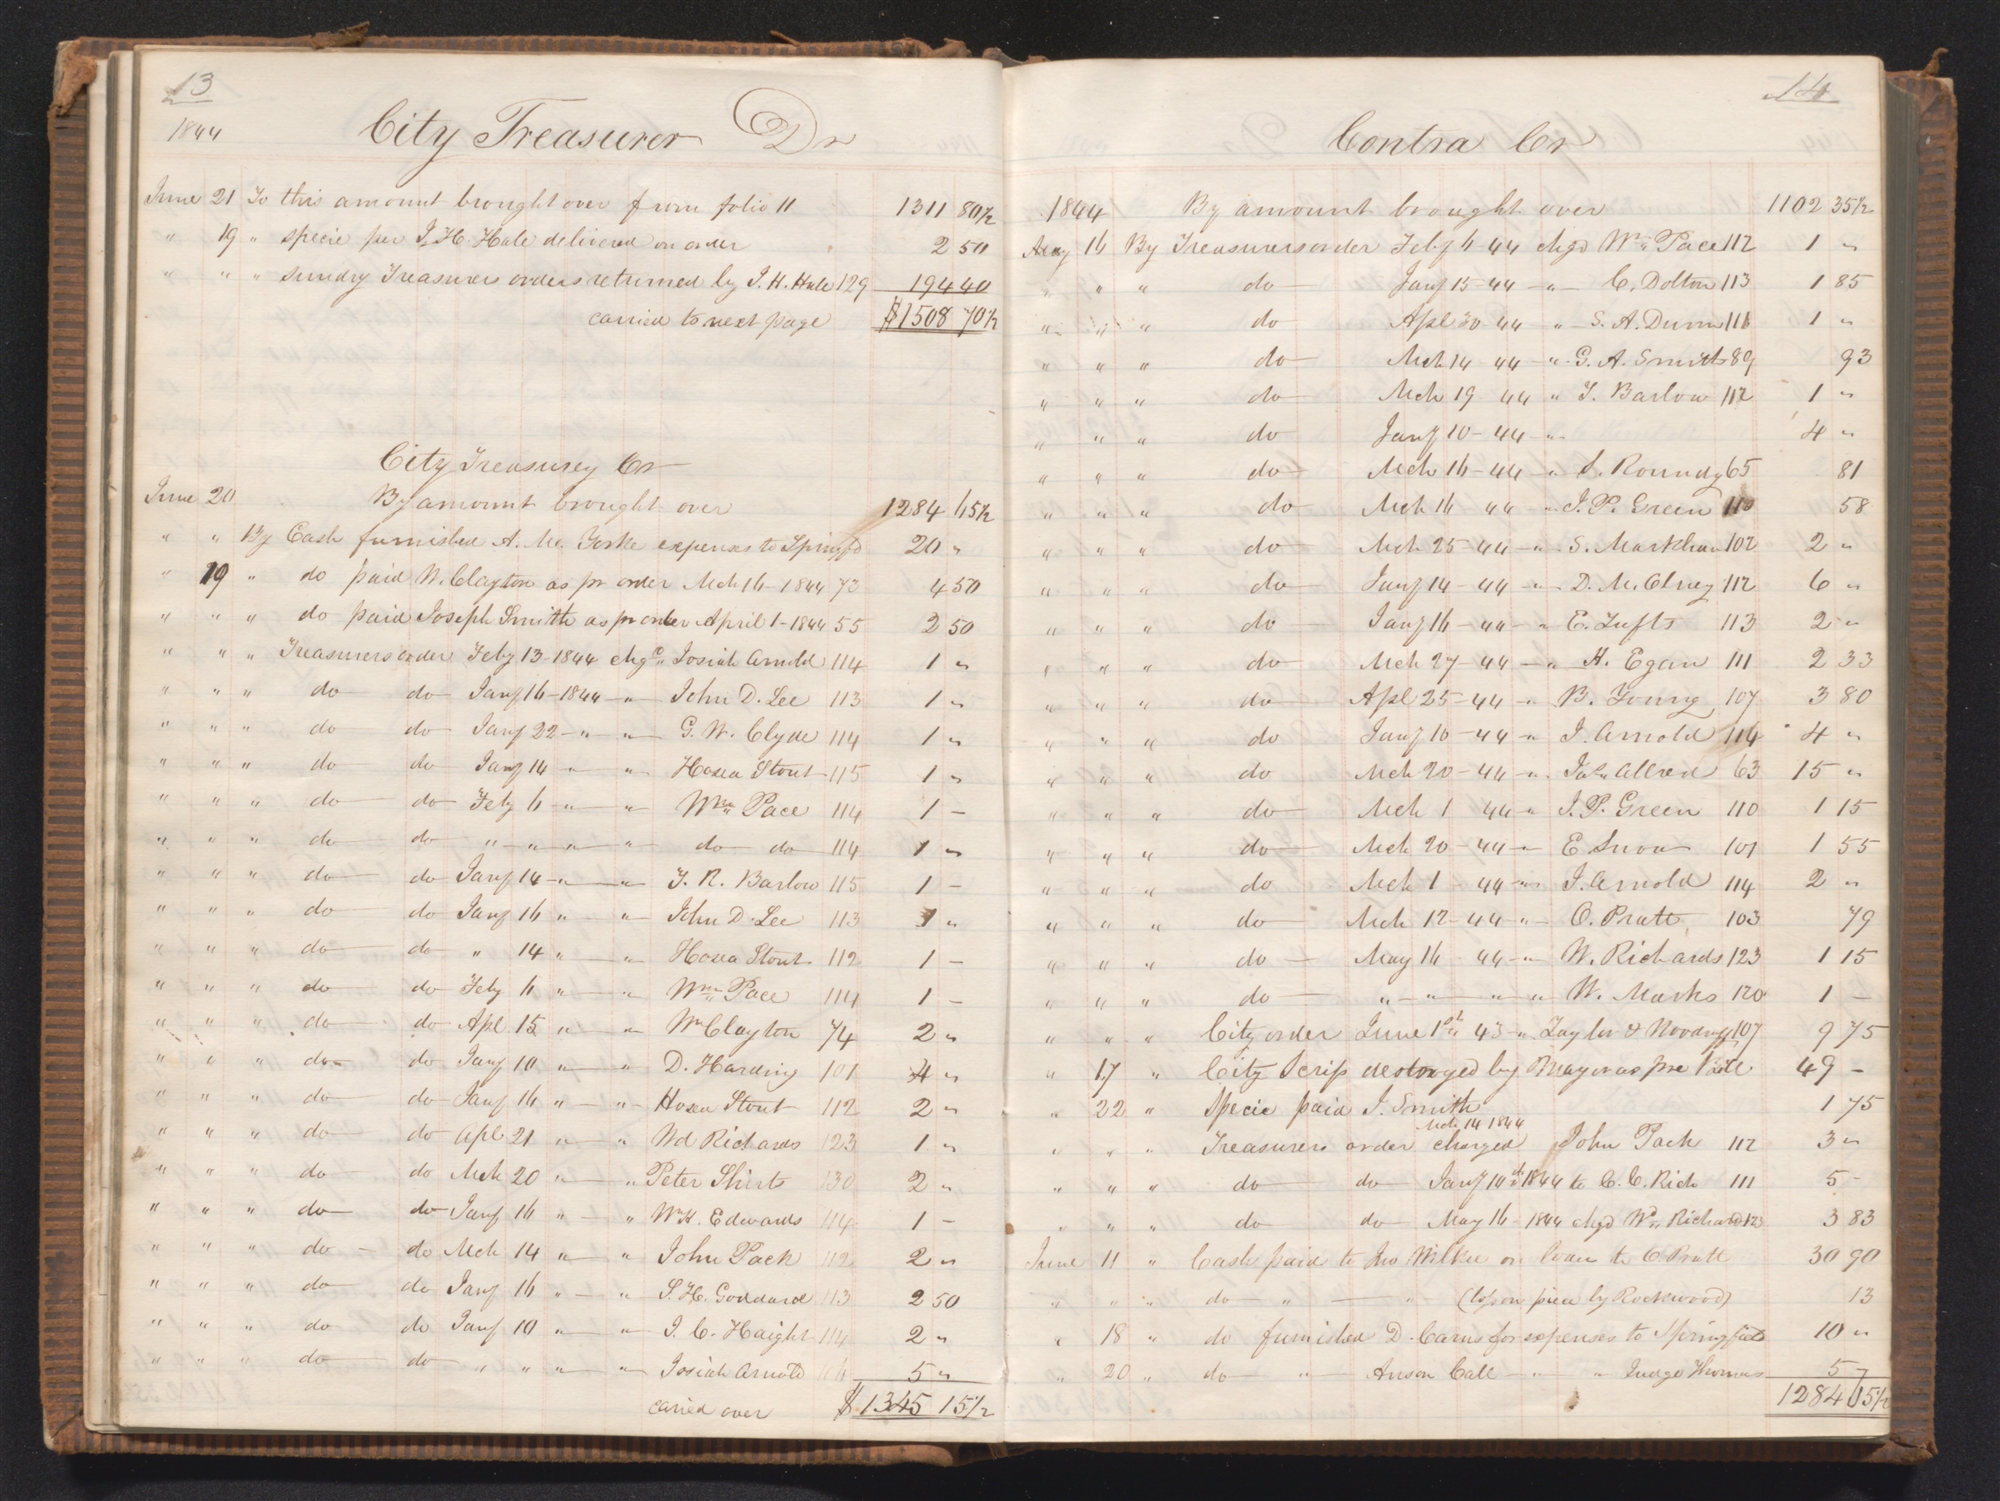 13
1844 City Treasurer Dr
June 21 To this amount brought over from folio 11 1311 80½
" 19 " specie per J. H. Hale delivered on order 2 50
" " " sundry Treasurers orders returned by J. H. Hale 129 194 40
carried to next page $1508 70½
City Treasurey Cr
June 20 By amount brought over 1284 15½
" " By Cash furnished A. Mc. expenses to Springfd 20 "
" 19 " do paid W. Clayton as pr order Mch 16-1844 73 4 50
" " " do paid Joseph Smith as pr order April 1-1844 55 2 50
" " " Treasurers order Feby 13-1844 chgd Josiah Arnold 114 1 "
" " " do do Jany 16-1844 " John D. Lee 113 1 "
" " " do do Jany 22 - " " G. W. Clyde 114 1 "
" " " do do Jany 14 " " Hosea Stout 115 1 "
" " " do do Feby 6 " " Wm Pace 114 1 -
" " " do do " " " " do do 114 1 "
" " " do do Jany 14 " " I. R. Barlow 115 1 -
" " " do do Jany 16 " " John D. Lee 113 1 "
" " " do do " 14 " " Hosea Stout 112 1 -
" " " do do Feby 6 " " Wm Pace 114 1 -
" " " do do Apl 15 " " Wm Clayton 74 2 "
" " " do do Jany 10 " " D. Harding 101 4 "
" " " do do Jany 16 " " Hosea Stout 112 2 "
" " " do do Apl 21 " " Wd Richards 123 1 "
" " " do do Mch 20 " " Peter Shirts 130 2 "
" " " do do Jany 16 " " Wm Edwards 114 1 -
" " " do do Mch 14 " " John Pack 112 2 "
" " " do do Jany 16 " " S. H. Goddard 113 2 50
" " " do do Jany 10 " " I. C. Haight 114 2 "
" " " do do " " " " Josiah Arnold 5 "
caried over $1345 15½
14
Contra Cr
1844 By amount brought over 1102 35½
May 16 By Treasurers order Feby 6-44 chgd Wm Pace 112 1 "
" " " do Jany 15-44 " C. Dolton 113 1 85
" " " do Apl 30-44 " S. A. Dunn 116 1 "
" " " do Mch 14-44 " G. A. Smith 89 93
" " " do Mch 19-44 " I. Barlow 112 1 "
" " " do Jany 10-44 " 4 "
" " " do Mch 16-44 " S. Roundy 65 81
" " " do Mch 16 44 " J. P. Green 110 58
" " " do Mch 25-44 " S. Markham 102 2 "
" " " do Jany 14-44 " D. M. 112 6 "
" " " do Jany 16-44 " E. Tufts 113 2 "
" " " do Mch 27-44 " H. Egan 111 2 33
" " " do Apl 25-44 " B. Young 107 3 80
" " " do Jany 10-44 " J. Arnold 114 4 "
" " " do Mch 20-44 " Jas Allred 63 15 "
" " " do Mch 1 44 " J. P. Green 110 1 15
" " " do Mch 20-44 " E Snow 101 1 55
" " " do Mch 1-44 " J. Arnold 114 2 "
" " " do Mch 12-44 " O. Pratt 103 79
" " " do May 16-44 " W. Richards 123 1 15
" " " do " " " " W. Marks 120 1 -
" " " City order June 1st 43 " Taylor & Woodruff 107 9 75
" 17 " City Scrip destroyed by Mayor as pre 49 -
" 22 " Specie paid J. Smith 1 75
Mch 14 1844
" " " Treasurers order charged John Pack 112 3 "
" " " do do Jany 10th 1844 to C. C. Rich 111 5 -
" " " do do May 16-1844 chgd Wd Richards 123 3 83
June 11 " Cash paid to Jno Wilkie on loan to O. Pratt 30 90
" " " do " " (loss on piece by Rockwood) 13
" 18 " do furnished D. Carns for expenses to Springfield 10 "
" 20 " do " Anson Call " " Judge Thomas 5 -
1284 15½